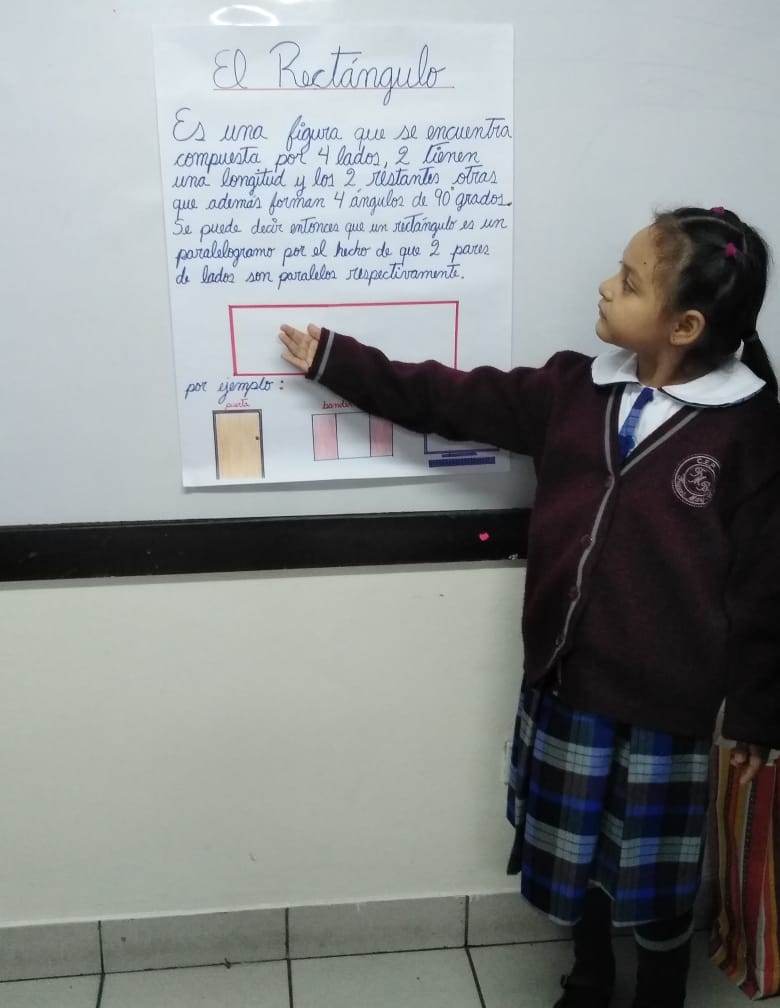 El Rectángulo
Es una figura que se encuentra
compuesta por 4 lados, 2 tienen
una longitud y los 2 restantes otras
que además forman 4 ángulos de 90° grados.
Se puede decir entonces que un rectángulo es un
paralelogramo por el hecho de que 2 pares
de lados son paralelos respectivamente.
por ejemplo :
puerta